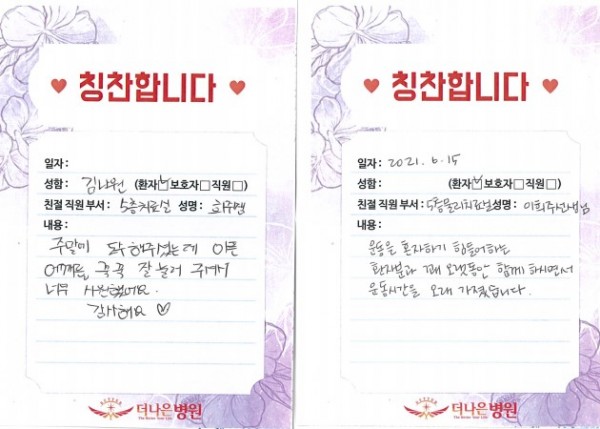 ♥ 칭찬합니다 ♥
일자 :
성함 : 김나원 (환자☑보호자□직원□)
친절 직원 부서 : 5층치료실 성명 :
내용 :
주말에 해주셨는데 아픈
어깨를 꾹꾹 잘 눌러 주셔서
너무 시원했어요.
감사해요 ♡
더나은병원
♥ 칭찬합니다 ♥
일자 : 2021. 6. 15
성함 : (환자☑보호자□직원□)
친절 직원 부서 : 5층물리치료실 성명 : 이희주선생님
내용 :
운동을 혼자하기 힘들어하는
환자분과 꽤 오랫동안 함께 하시면서
운동시간을 오래 가졌습니다.
더나은병원